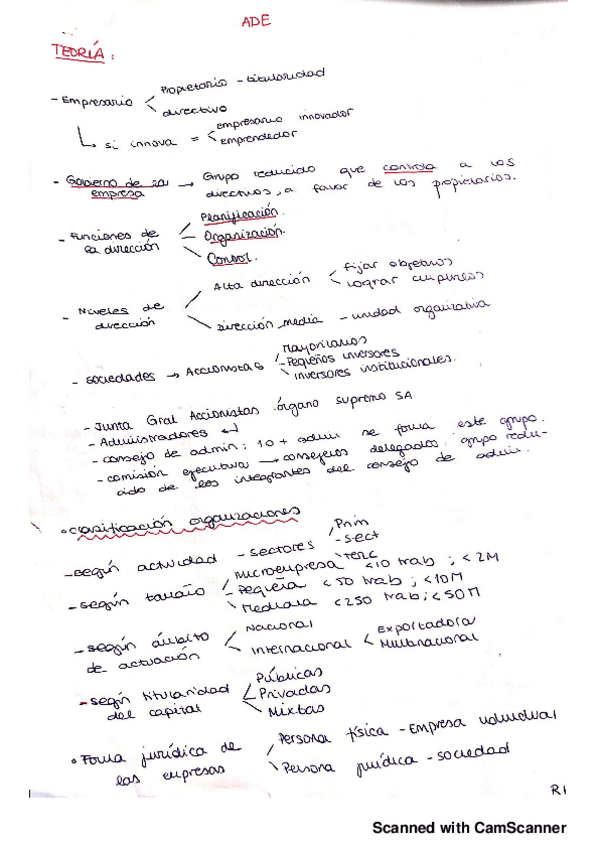 ADE
TEORÍA:
- Empresario < Propietario - titularidad
directivo
↳ si innova = < empresario innovador
emprendedor
- Gobierno de la empresa → Grupo reducido que controla a los
directivos, a favor de los propietarios.
- Funciones de la dirección
Planificación.
Organización.
Control.
- Niveles de dirección
Alta dirección < fijar objetivos
lograr cumplirlos
dirección media - unidad organizativa
- Sociedades → Accionistas
Mayoritarios
Pequeños inversores
inversores institucionales.
- Junta Gral Accionistas órgano supremo SA
- Administradores ↵
- consejo de admin: 10 + admin se forma este grupo.
- comisión ejecutiva → consejeros delegados. grupo redu-
cido de los integrantes del consejo de admin.
• Clasificación organizaciones
- según actividad - sectores
Prim
- sect
terc
- según tamaño
Microempresa <10 trab ; <2M
- Pequeña <50 trab ; <10M
Mediana <250 trab; <50M
- según ámbito de actuación
Nacional
Internacional < Exportadora
Multinacional
- según titularidad del capital
Públicas
Privadas
Mixtas
• Forma jurídica de las empresas
Persona física - Empresa individual
Persona jurídica - sociedad
R1
Scanned with CamScanner